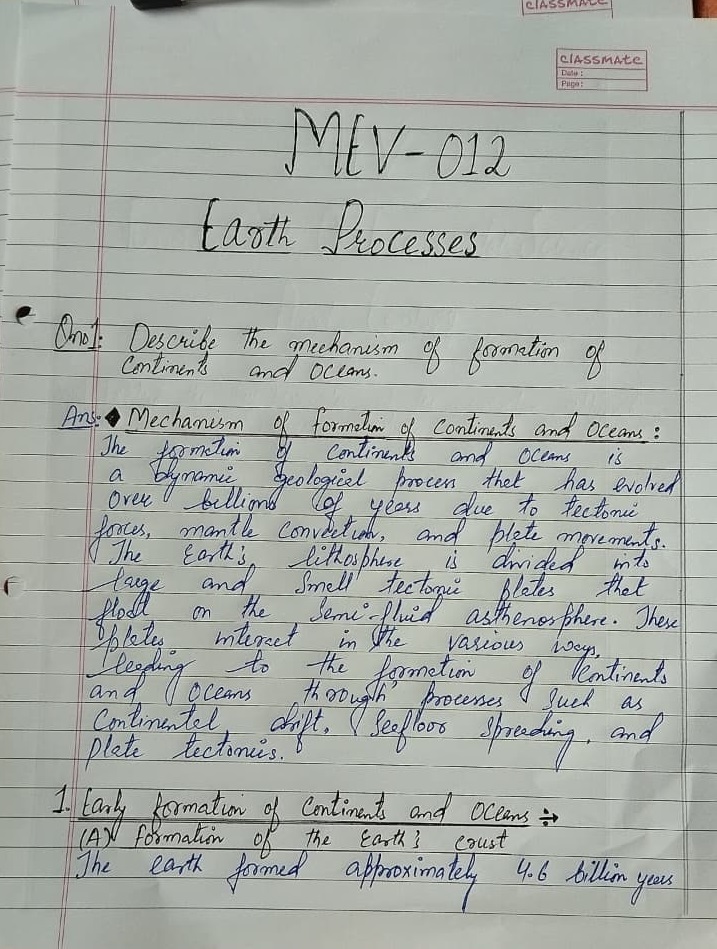 CLASSMATE
CLASSMATE
Date :
Page :
MEV-012
Earth Processes
Qno1: Describe the mechanism of formation of
Continents and Oceans.
Ans:- Mechanism of formation of Continents and Oceans :
The formation of Continents and Oceans is
a Dynamic Geological process that has evolved
over billions of years due to tectonic
forces, mantle convection, and plate movements.
The Earth's lithosphere is divided into
large and small tectonic plates that
float on the semi-fluid asthenosphere. These
plates interact in the various ways,
leading to the formation of Continents
and Oceans through processes such as
Continental drift, Seafloor Spreading, and
Plate tectonics.
1. Early formation of Continents and Oceans ÷
(A) Formation of the Earth's Crust
The earth formed approximately 4.6 billion years